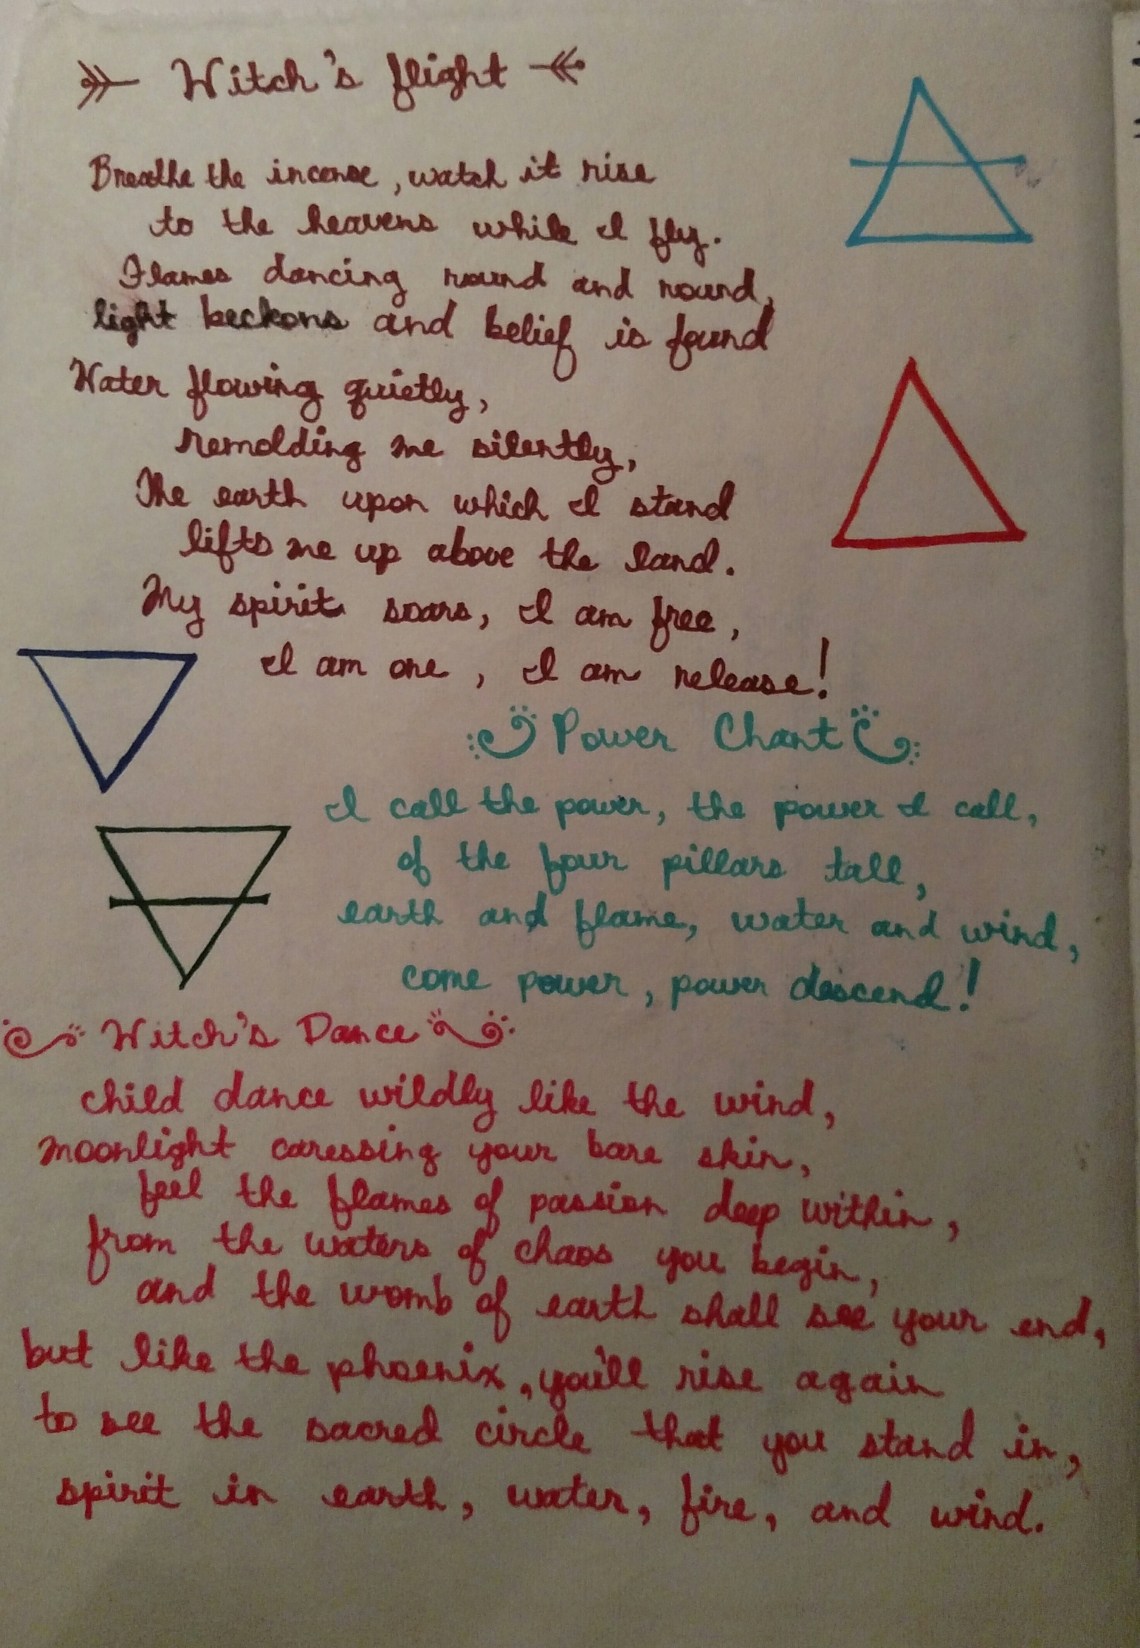 Witch's flight
Breathe the incense, watch it rise
to the heavens while I fly.
Flames dancing round and round,
light beckons and belief is found
Water flowing quietly,
remolding me silently,
The earth upon which I stand
lifts me up above the land.
My spirit soars, I am free,
I am one, I am release!
Power Chant
I call the power, the power I call,
of the four pillars tall,
earth and flame, water and wind,
come power, power descend!
Witch's Dance
child dance wildly like the wind,
moonlight caressing your bare skin,
feel the flames of passion deep within,
from the waters of chaos you begin,
and the womb of earth shall see your end,
but like the phoenix, you'll rise again
to see the sacred circle that you stand in,
spirit in earth, water, fire, and wind.